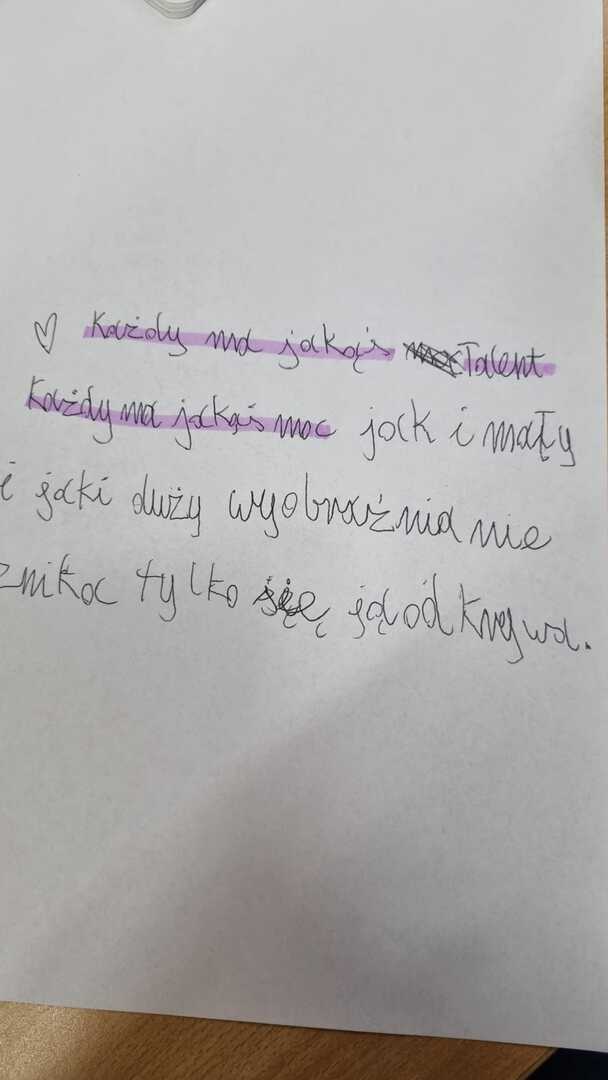 Każdy ma jakąś Talent
Każdy ma jakąś moc jak i mały
i jaki duży wyobraźnia nie
znika tylko się ją ódkrywa.